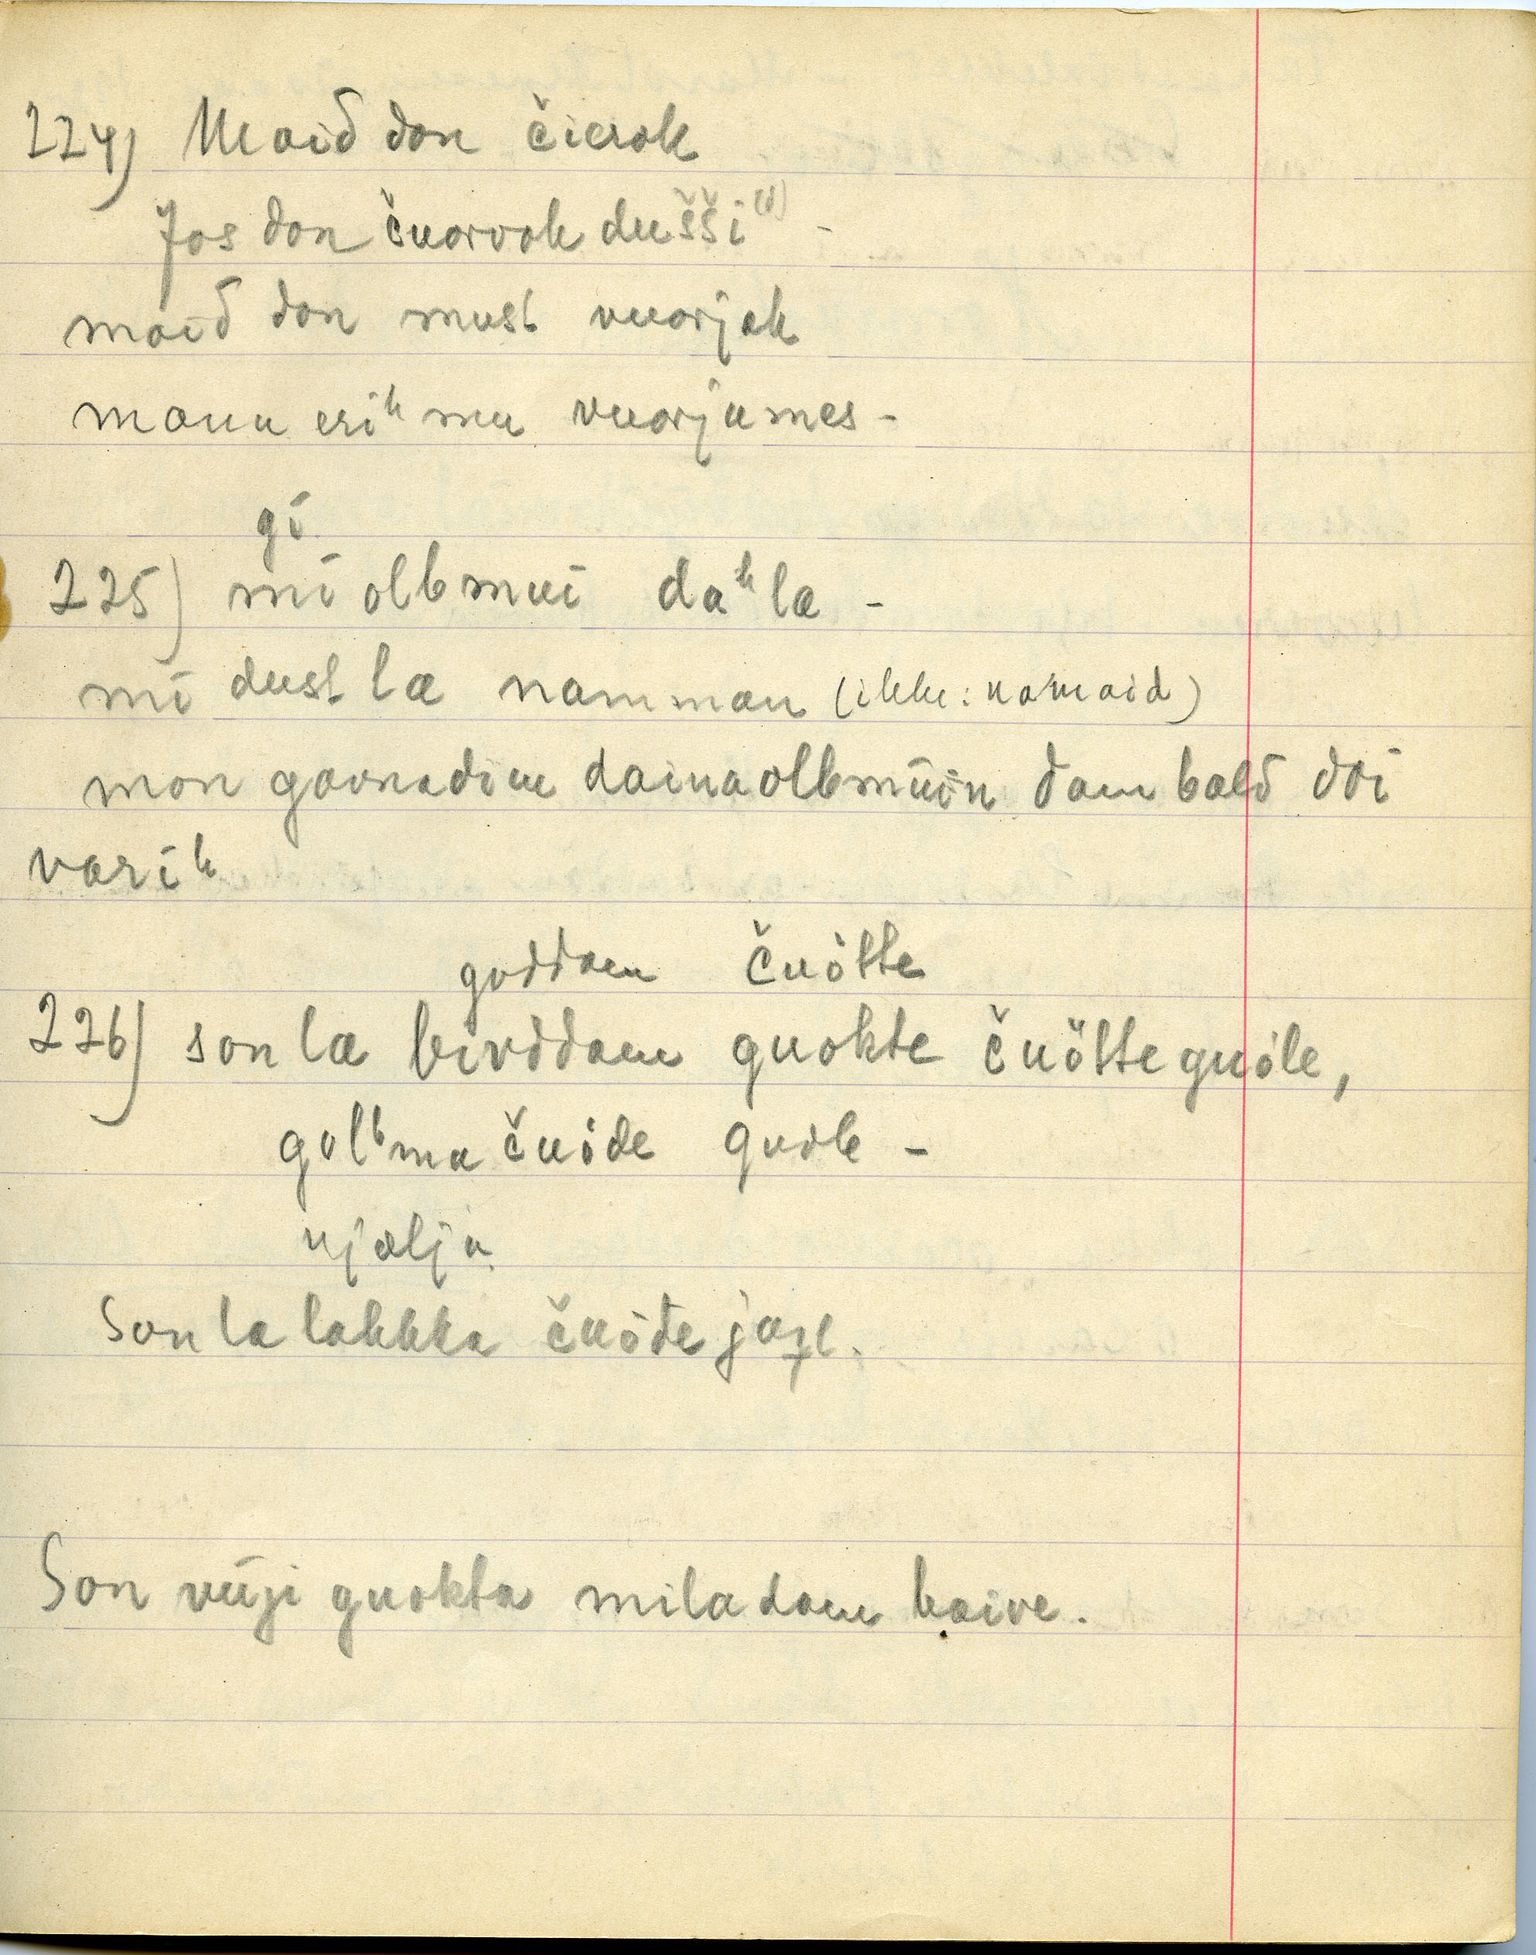 224) Maid don čierok
Jos don čuorvok dušši(d) -
maid don must vuorjak
manu erik mu vuorjumes -
gi
225) mi olbmui dahla -
mi dust la namman (ikke: namaid)
mon gavnadim daina olbmuin dam bald dai
varik
goddam čuòtte
226) son la bivddam guokte čuòtte guòle,
golbma čuòde guole -
njælja
Son la lakkka čuòđe jagẹ.
Son vuji guokta mila dam baive.